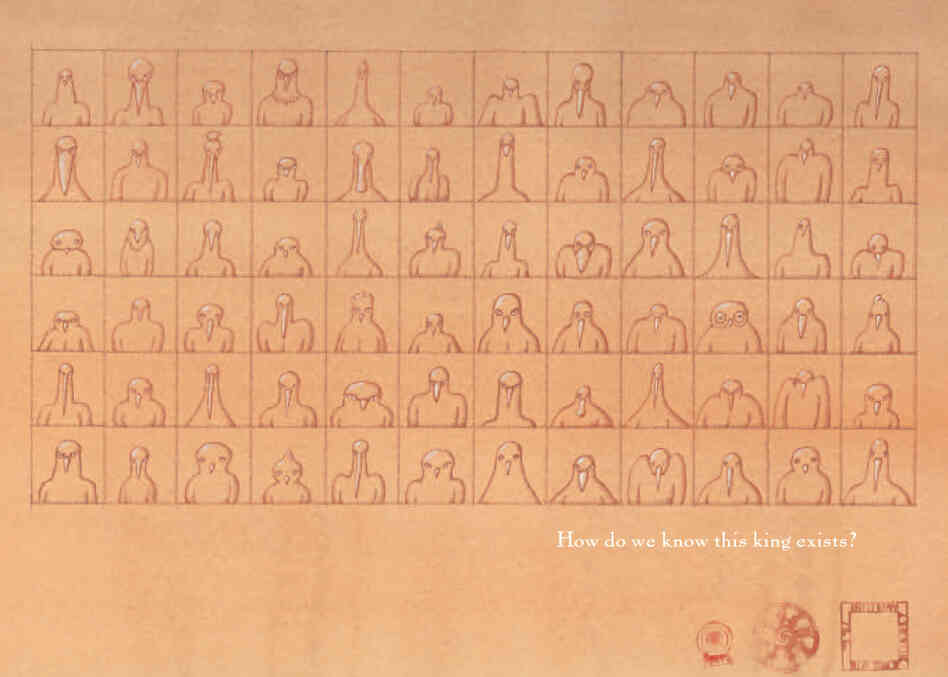 How do we know this king exists?